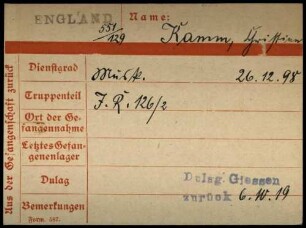 ENGLAND
Name:
551/129
Kamm, Christian
Aus der Gefangenschaft zurück
Dienstgrad
Musk.
26.12.98
Truppenteil
J. R. 126/2
Ort der Ge-
fangennahme
Letztes Gefan-
genenlager
Dulag
Dulag. Giessen
Bemerkungen
zurück 6.10.19
Form. 587.